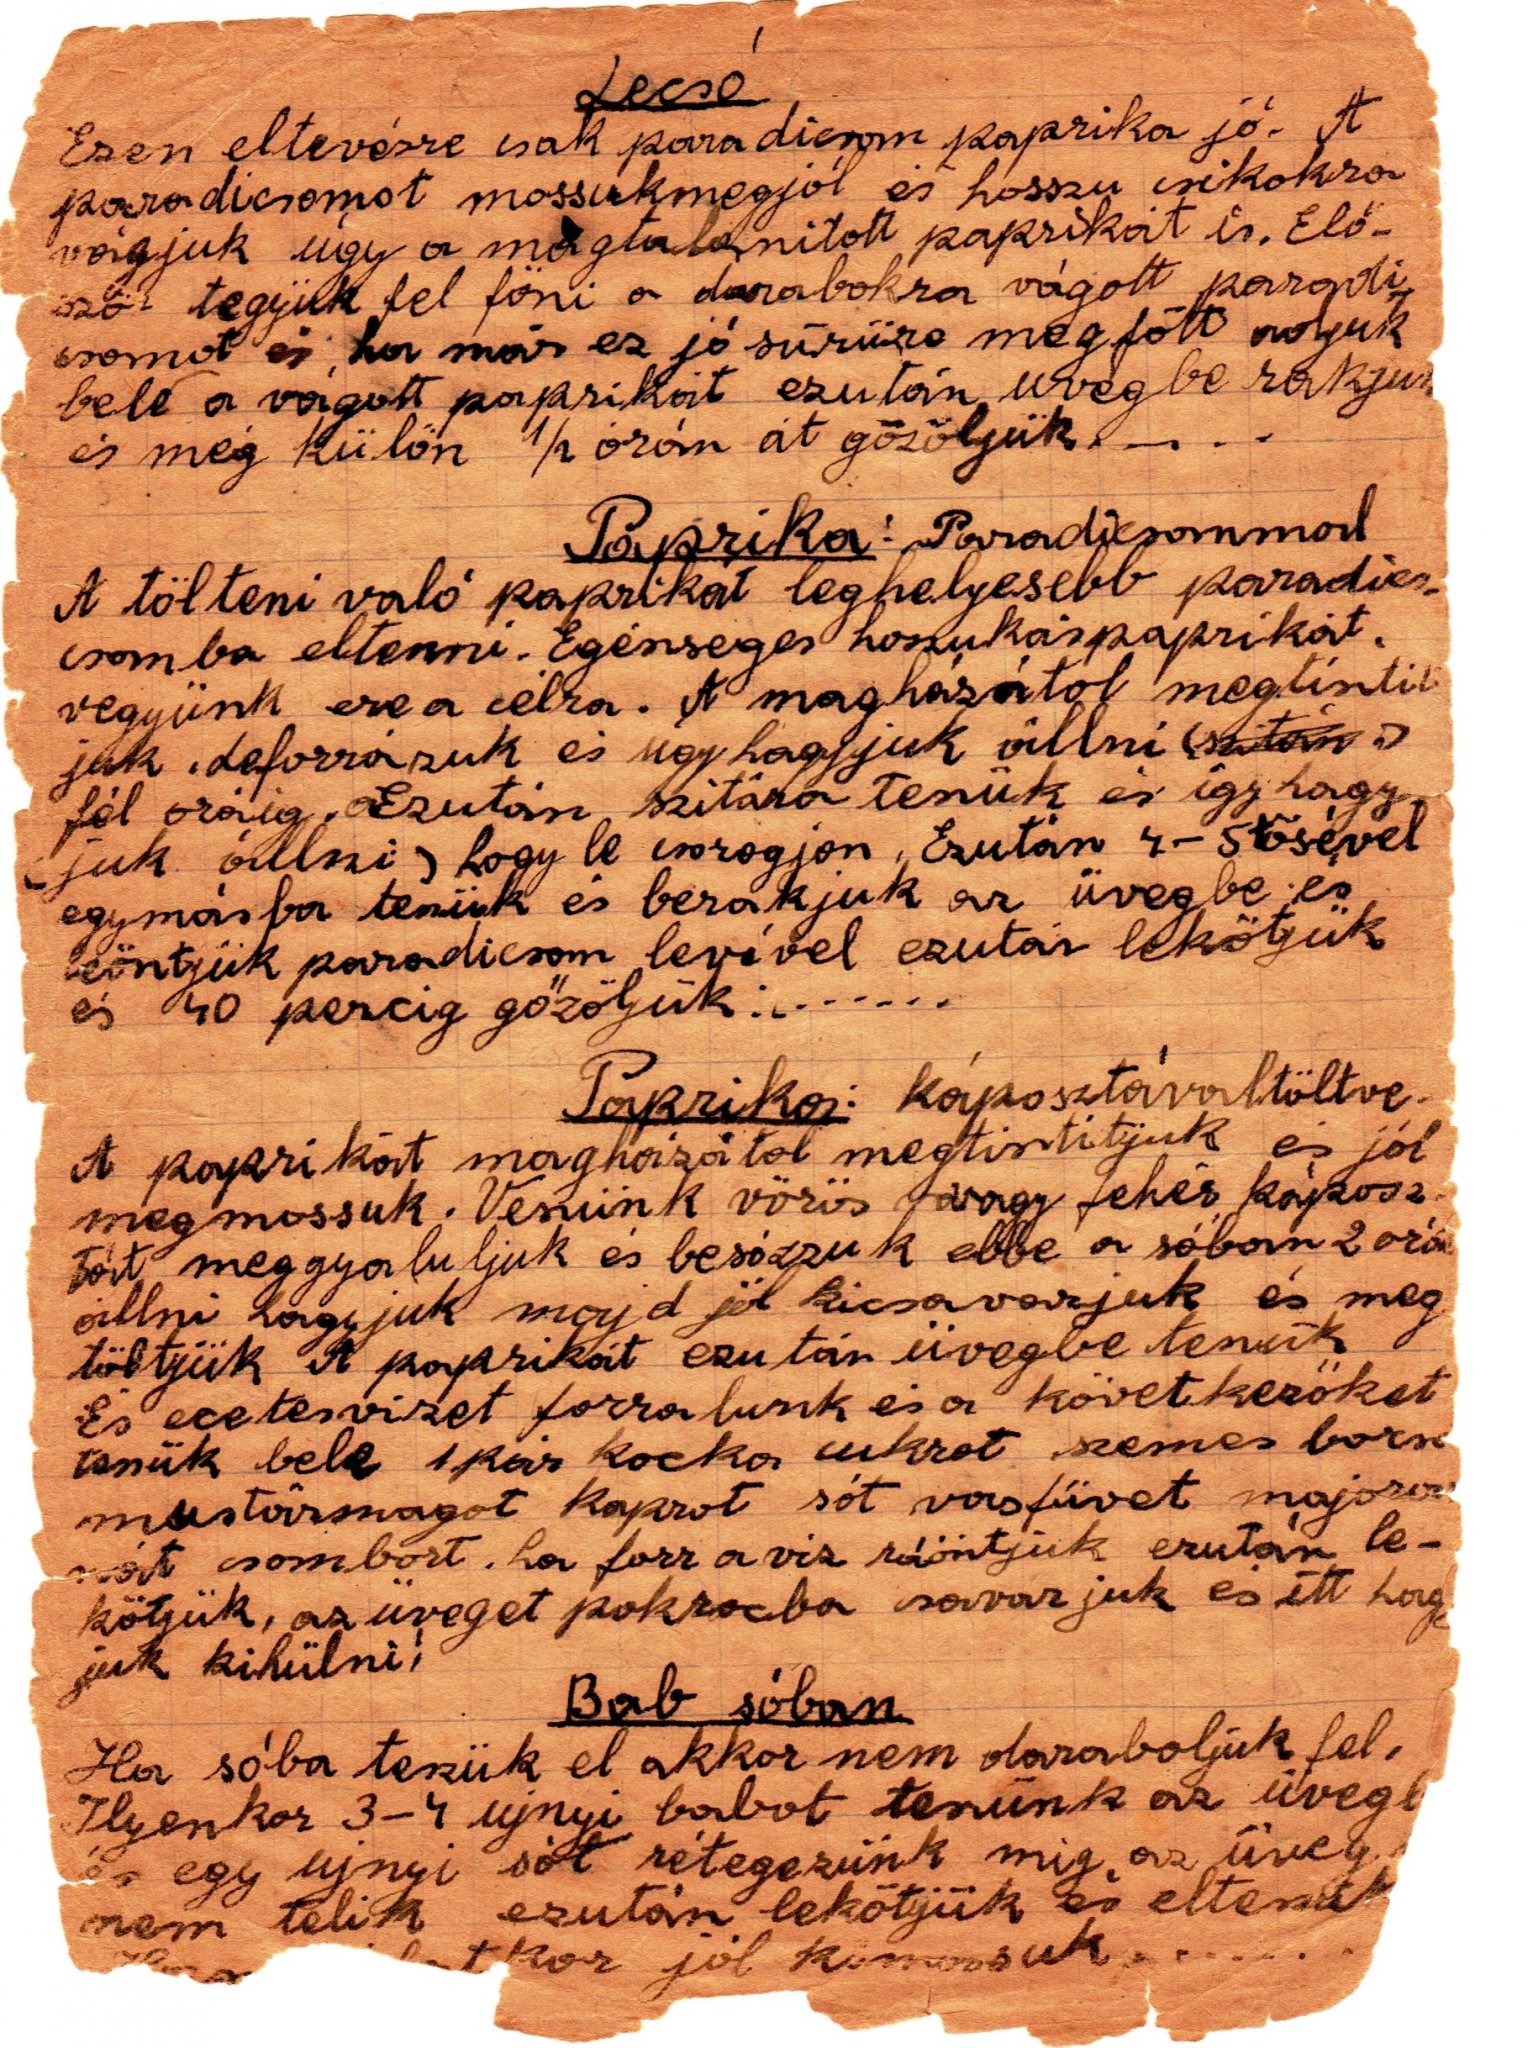 Lecsó
Ezen eltevésre csak paradicsom paprika jó. A
paradicsomot mossukmegjól és hosszu csikokra
vágjuk úgy a magtalanitott paprikát is. Elő-
ször tegyük fel főni a darabokra vágott paradi
csomot és ha már ez jó sürüre megfőtt adjuk
bele a vágott paprikát ezután üvegbe rakjuk
és még külön 1/2 órán át gőzöljük. — . -
Paprika: Paradicsommal
A tölteni való paprikát leghelyesebb paradics-
csomba eltenni. Egénseges hoszukáspaprikát.
vegyünk erea célra. A magházátol megtintit
juk. leforrázuk és úgyhagyjuk állni (
fél oráig. Ezután szitára teszük és így hagy
juk állni) hogy le csorogjon. Ezután 4-5tősével
egymásba teszük és berakjuk az üvegbe és
leöntjük paradicsom levível ezután lekötjük
és 40 percig gőzöljük:.------
Paprika: káposztávaltöltve.
A paprikát magházátol megtintitjuk és jól
megmossuk. Veszünk vörös vagy fehér káposz
tát meggyaluljuk és besózzuk ebbe a sóban 2 orá
állni hagyjuk majd jól kicsavarjuk és meg
töltjük A paprikát ezután üvegbe teszük
És ecetesvizet forralunk és a következőket
teszük bele 1 pár kocka cukrot szemes bors
mustármagot kaprot sót vasfüvet majoran
nát csombort. ha forr a viz ráöntjük ezután le-
kötjük, az üveget pokrocba csavarjuk és itt hagy
juk kihülni!
Bab sóban
Ha sóba teszük el akkor nem daraboljuk fel.
Ilyenkor 3-4 ujnyi babot teszünk az üvegb
és egy ujnyi sót rétegezünk mig az üveg
nem telik ezután lekötjük és elteszük
kor jól kimossuk.......